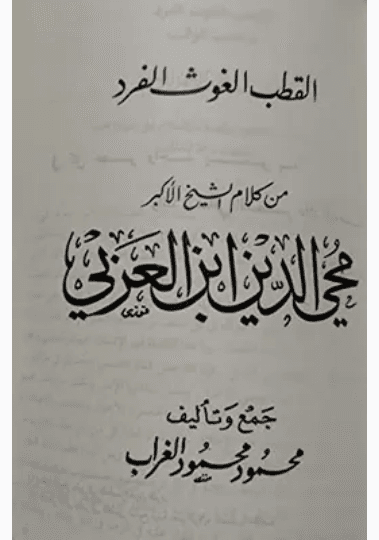 القطب الغوث الفرد
من كلام الشيخ الأكبر
محيي الدين ابن العربي
جمع وتأليف
محمود محمود الغراب